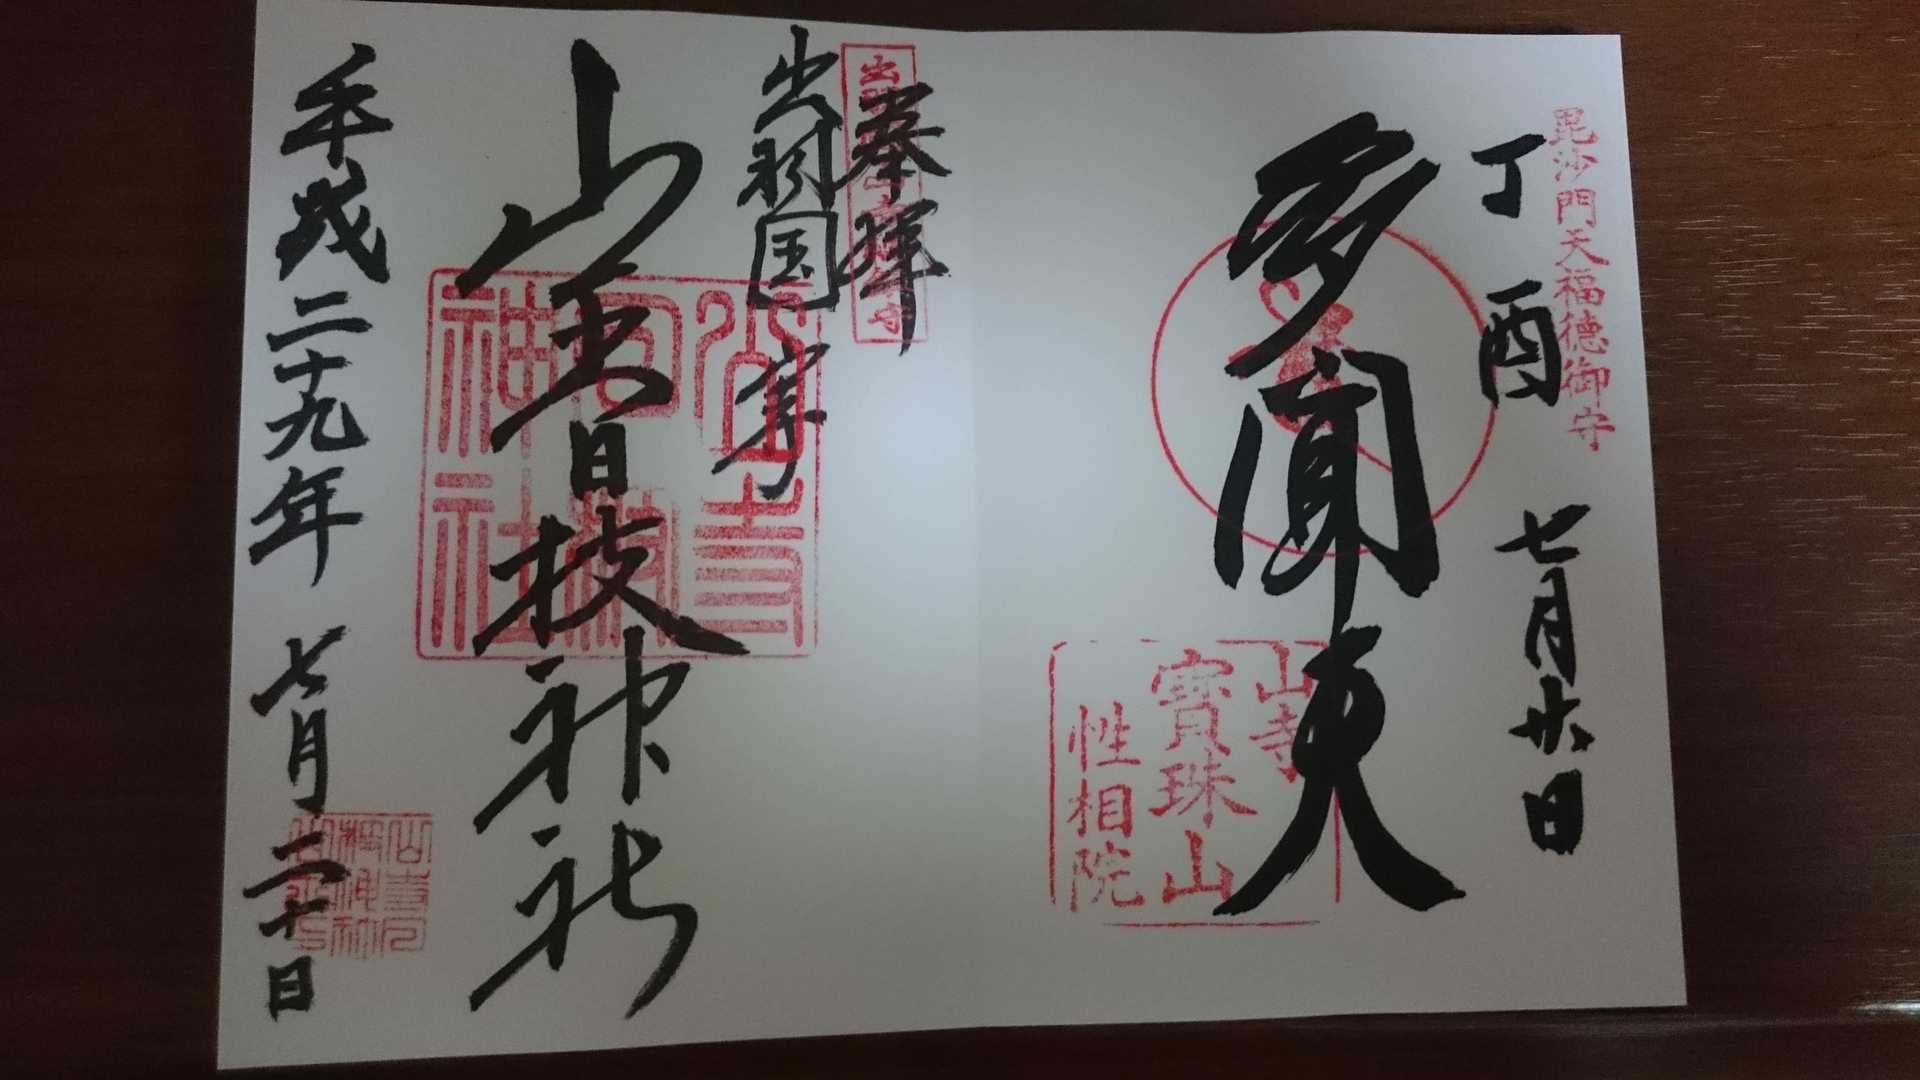 毘沙門天福徳御守
丁酉 七月廿六日
多聞天
山寺
寶珠山
性相院
奉拝
出羽国
山寺
山王日枝神社
山寺
神社
平成二十九年 七月二十日